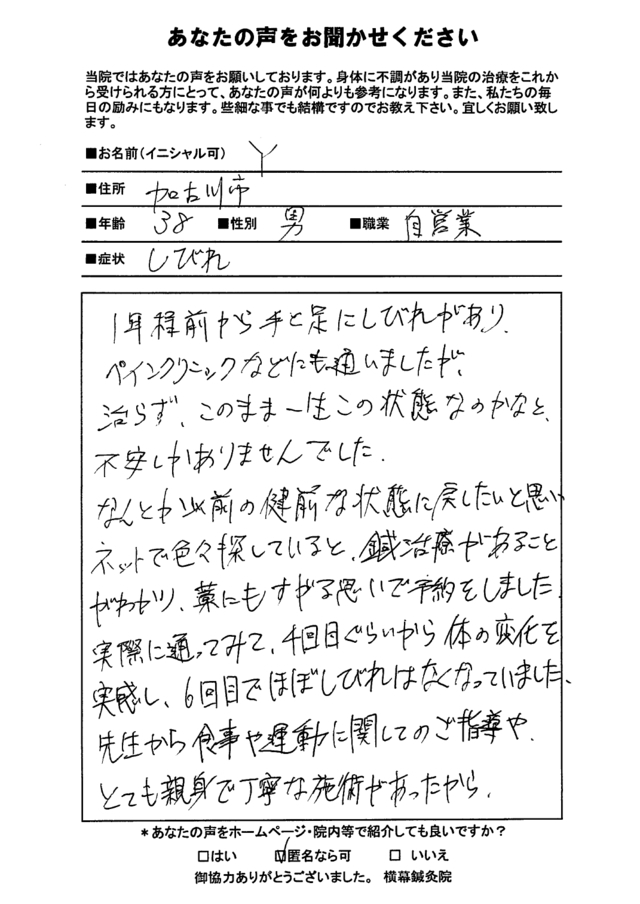 あなたの声をお聞かせください
当院ではあなたの声をお願いしております。身体に不調があり当院の治療をこれか
ら受けられる方にとって、あなたの声が何よりも参考になります。また、私たちの毎
日の励みにもなります。些細な事でも結構ですのでお教え下さい。宜しくお願い致し
ます。
■お名前(イニシャル可) Y
■住所 加古川市
■年齢 38 ■性別 男 ■職業 自営業
■症状 しびれ
1年程前から手と足にしびれがあり、
ペインクリニックなどにも通いましたが、
治らず、このまま一生この状態なのかなと、
不安しかありませんでした.
なんとか以前の健前な状態に戻したいと思い
ネットで色々探していると、鍼治療があること
がわかり、藁にもすがる思いで予約をしました.
実際に通ってみて、4回目ぐらいから体の変化を
実感し、6回目でほぼしびれはなくなっていました、
先生から食事や運動に関してのご指導や、
とても親身で丁寧な施術があったから、
*あなたの声をホームページ・院内等で紹介しても良いですか?
□はい ☑匿名なら可 □ いいえ
御協力ありがとうございました。 横幕鍼灸院